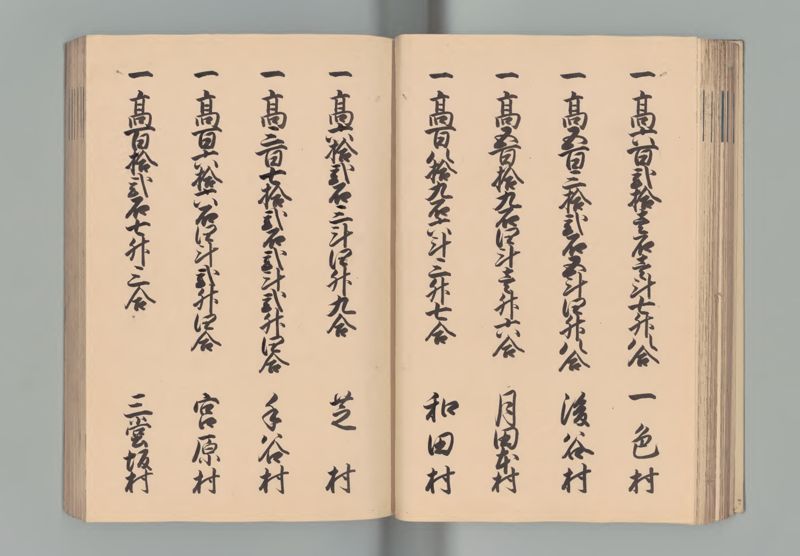 一 高六百弐拾壱石壱斗七升八合 一色村
一 高五百三拾弐石五斗四升八合 後谷村
一 高五百拾九石四斗壱升六合 月田本村
一 高百八拾九石六斗三升七合 和田村
一 高六拾弐石三斗四升九合 芝村
一 高三百七拾弐石弐斗弐升四合 手谷村
一 高百六拾六石四斗弐升四合 宮原村
一 高百拾弐石七升三合 三堂坂村